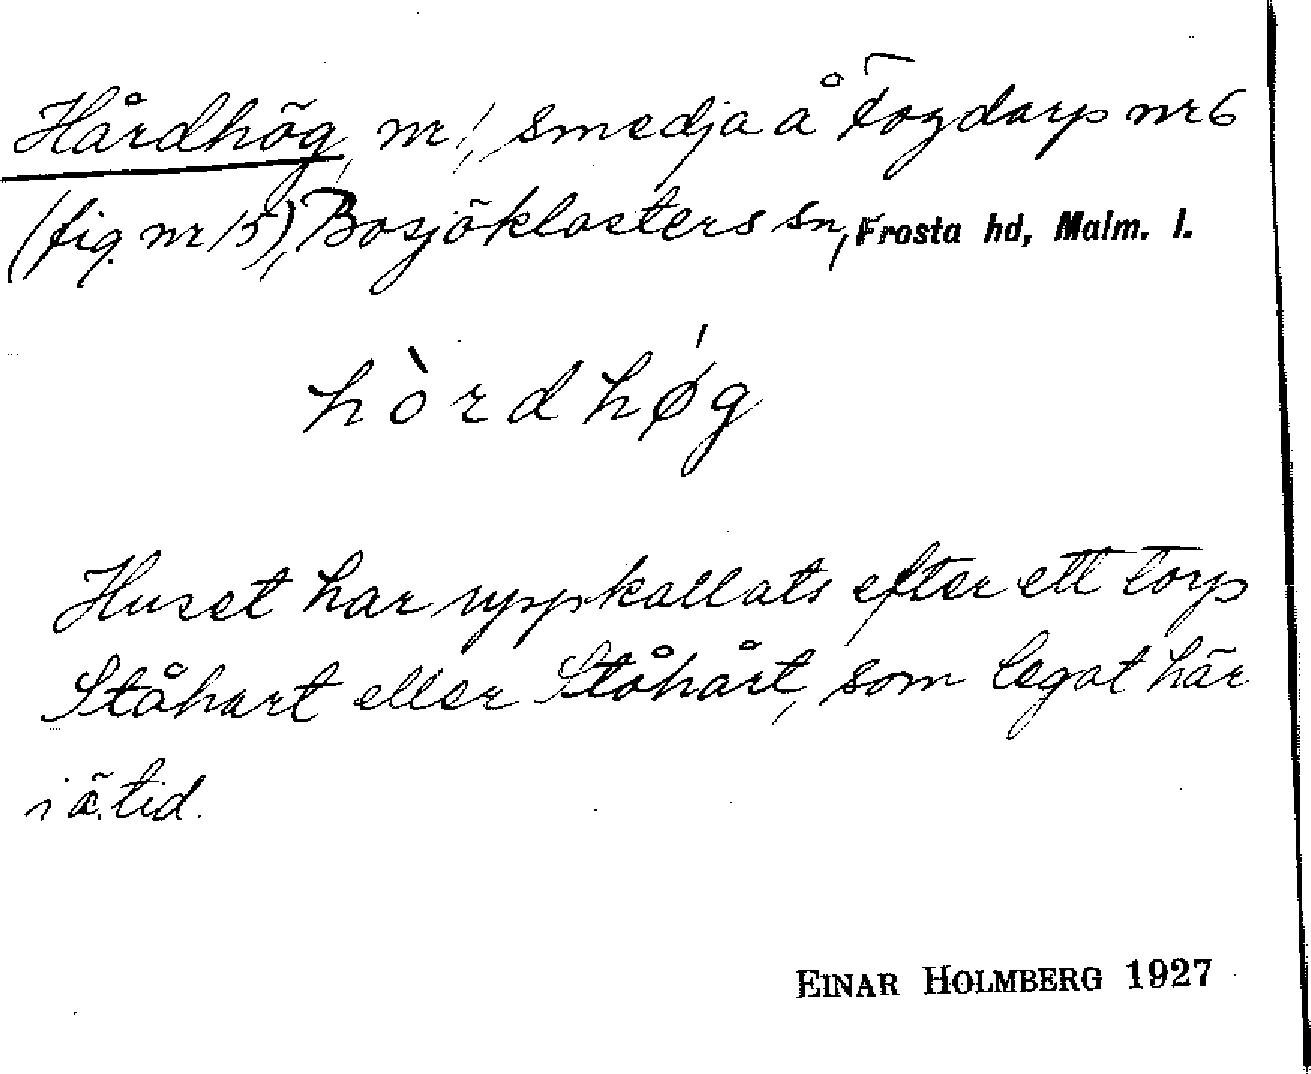 Hårdhög, nr 1, smedja å Fogdarp nr 6
(fig. nr 15), Bosjöklosters sn, Frosta hd, Malm. l.
hòrdhǿg
Huset har uppkallats efter ett torp
Ståhart eller Ståhårt, som legat här
i ä. tid.
EINAR HOLMBERG 1927